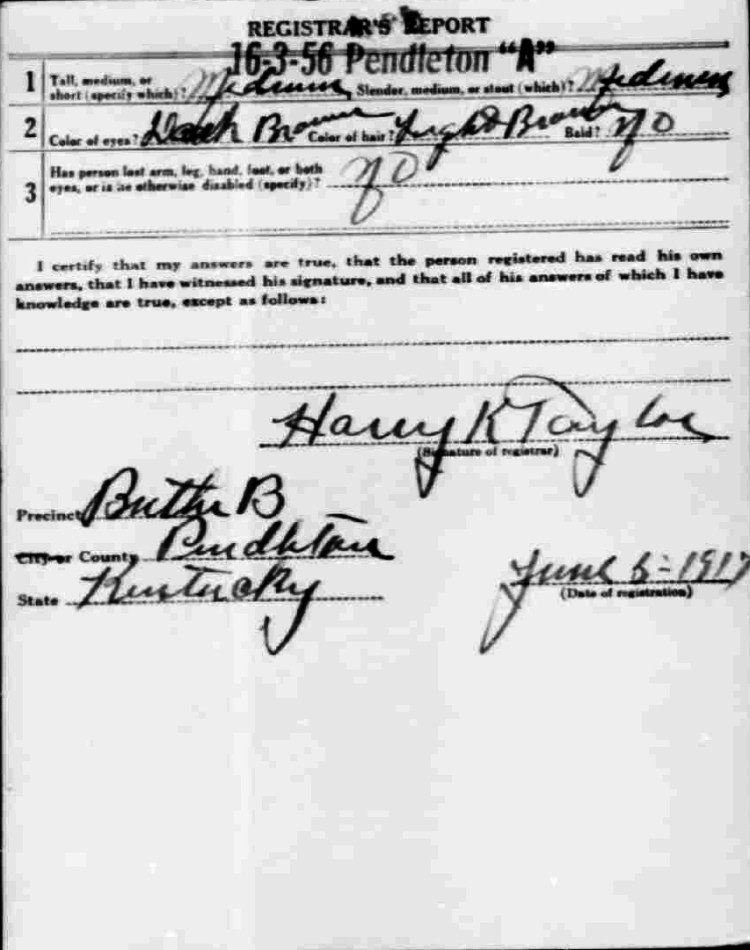 REGISTRAR'S REPORT
16-3-56 Pendleton "A"
1 Tall, medium, or short (specify which)? Medium Slender, medium, or stout (which)? Medium
2 Color of eyes? Dark Brown Color of hair? Light Brown Bald? No
3 Has person lost arm, leg, hand, foot, or both
eyes, or is he otherwise disabled (specify)? No
I certify that my answers are true, that the person registered has read his own
answers, that I have witnessed his signature, and that all of his answers of which I have
knowledge are true, except as follows:
Harry K Taylor
(Signature of registrar)
Precinct Butler B
City or County Pendleton
State Kentucky
June 5-1917
(Date of registration)